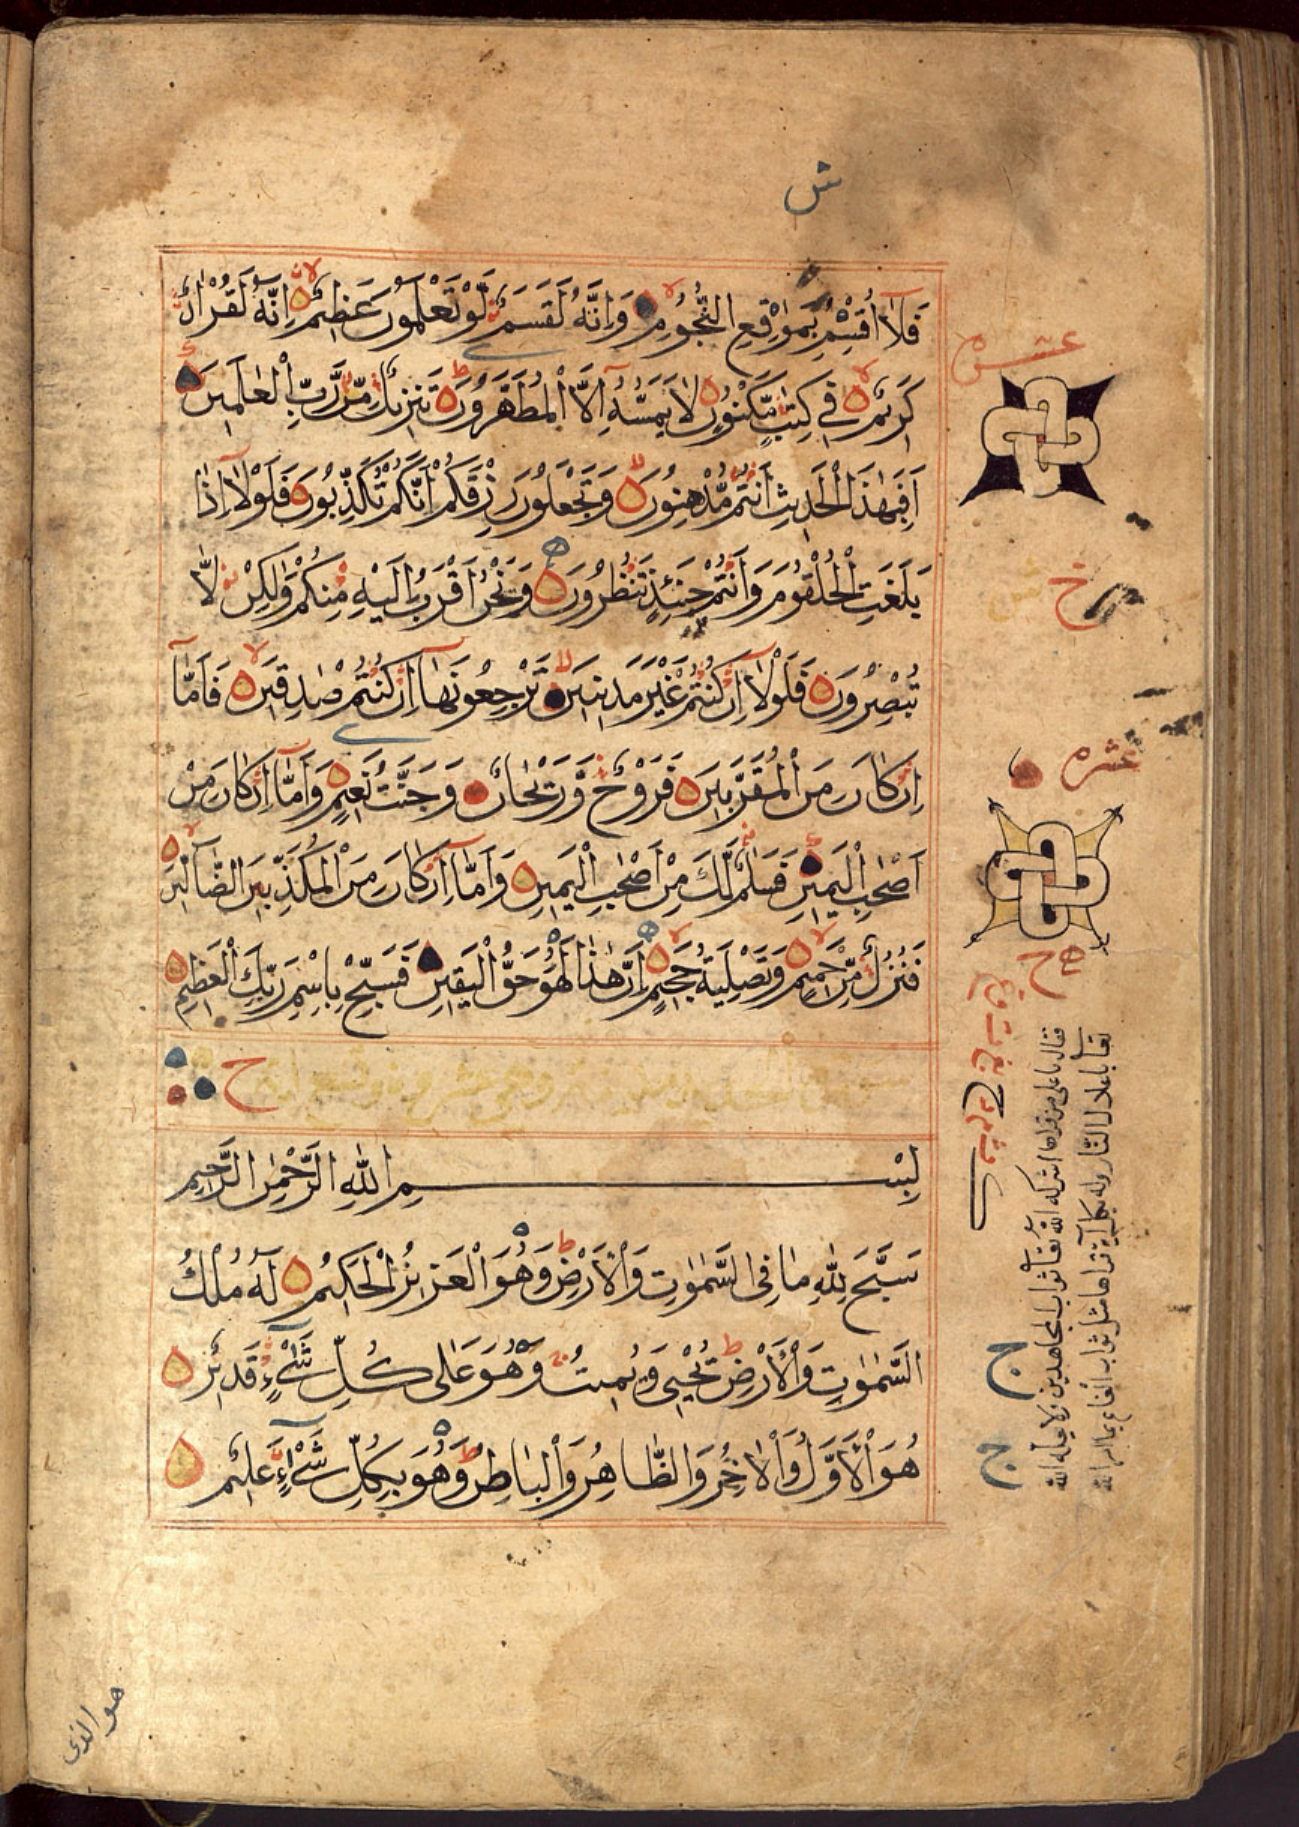 ش
فَلَا أُقْسِمُ بِمَوٰقِعِ النُّجُومِ وَاِنَّهُ لَقَسَمٌ لَوْ تَعْلَمُونَ عَظِيمٌ اِنَّهُ لَقُرْاٰنٌ
كَرِيمٌ فِي كِتٰبٍ مَّكْنُونٍ لَا يَمَسُّهُ اِلَّا الْمُطَهَّرُونَ تَنْزِيلٌ مِّنْ رَّبِّ الْعٰلَمِينَ
اَفَبِهٰذَا الْحَدِيثِ اَنْتُمْ مُّدْهِنُونَ وَتَجْعَلُونَ رِزْقَكُمْ اَنَّكُمْ تُكَذِّبُونَ فَلَوْلَا اِذَا
بَلَغَتِ الْحُلْقُومَ وَاَنْتُمْ حِينَئِذٍ تَنْظُرُونَ وَنَحْنُ اَقْرَبُ اِلَيْهِ مِنْكُمْ وَلٰكِنْ لَّا
تُبْصِرُونَ فَلَوْلَا اِنْ كُنْتُمْ غَيْرَ مَدِينِينَ تَرْجِعُونَهَا اِنْ كُنْتُمْ صٰدِقِينَ فَاَمَّا
اِنْ كَانَ مِنَ الْمُقَرَّبِينَ فَرَوْحٌ وَّرَيْحَانٌ وَجَنَّتُ نَعِيمٍ وَاَمَّا اِنْ كَانَ مِنْ
اَصْحٰبِ الْيَمِينِ فَسَلٰمٌ لَّكَ مِنْ اَصْحٰبِ الْيَمِينِ وَاَمَّا اِنْ كَانَ مِنَ الْمُكَذِّبِينَ الضَّالِّينَ
فَنُزُلٌ مِّنْ حَمِيمٍ وَتَصْلِيَةُ جَحِيمٍ اِنَّ هٰذَا لَهُوَ حَقُّ الْيَقِينِ فَسَبِّحْ بِاسْمِ رَبِّكَ الْعَظِيمِ
بِسْمِ اللهِ الرَّحْمٰنِ الرَّحِيمِ
سَبَّحَ لِلّٰهِ مَا فِي السَّمٰوٰتِ وَالْاَرْضِ وَهُوَ الْعَزِيزُ الْحَكِيمُ لَهُ مُلْكُ
السَّمٰوٰتِ وَالْاَرْضِ يُحْيِي وَيُمِيتُ وَهُوَ عَلٰى كُلِّ شَيْءٍ قَدِيرٌ
هُوَ الْاَوَّلُ وَالْاٰخِرُ وَالظَّاهِرُ وَالْبَاطِنُ وَهُوَ بِكُلِّ شَيْءٍ عَلِيمٌ
عشره
خ
عشره
ج
ج
هو الذى